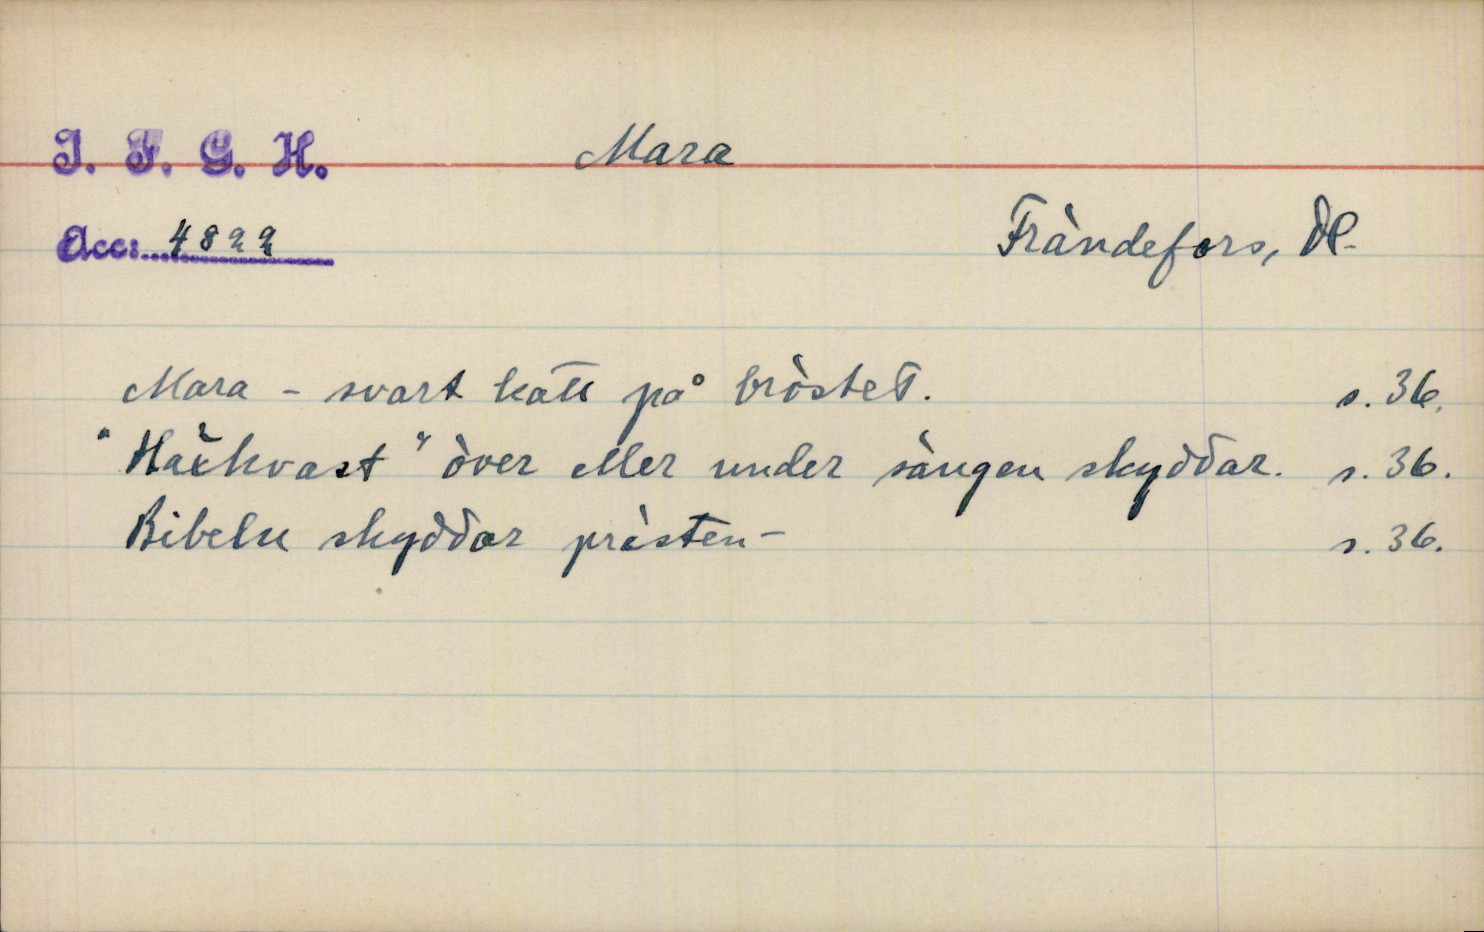 I. F. G. H.
Mara
Acc: 4822
Frändefors, Dl.
Mara - svart katt på bröstet. s. 36.
"Häxkvast" över eller under sängen skyddar. s. 36.
Bibeln skyddar prästen - s. 36.